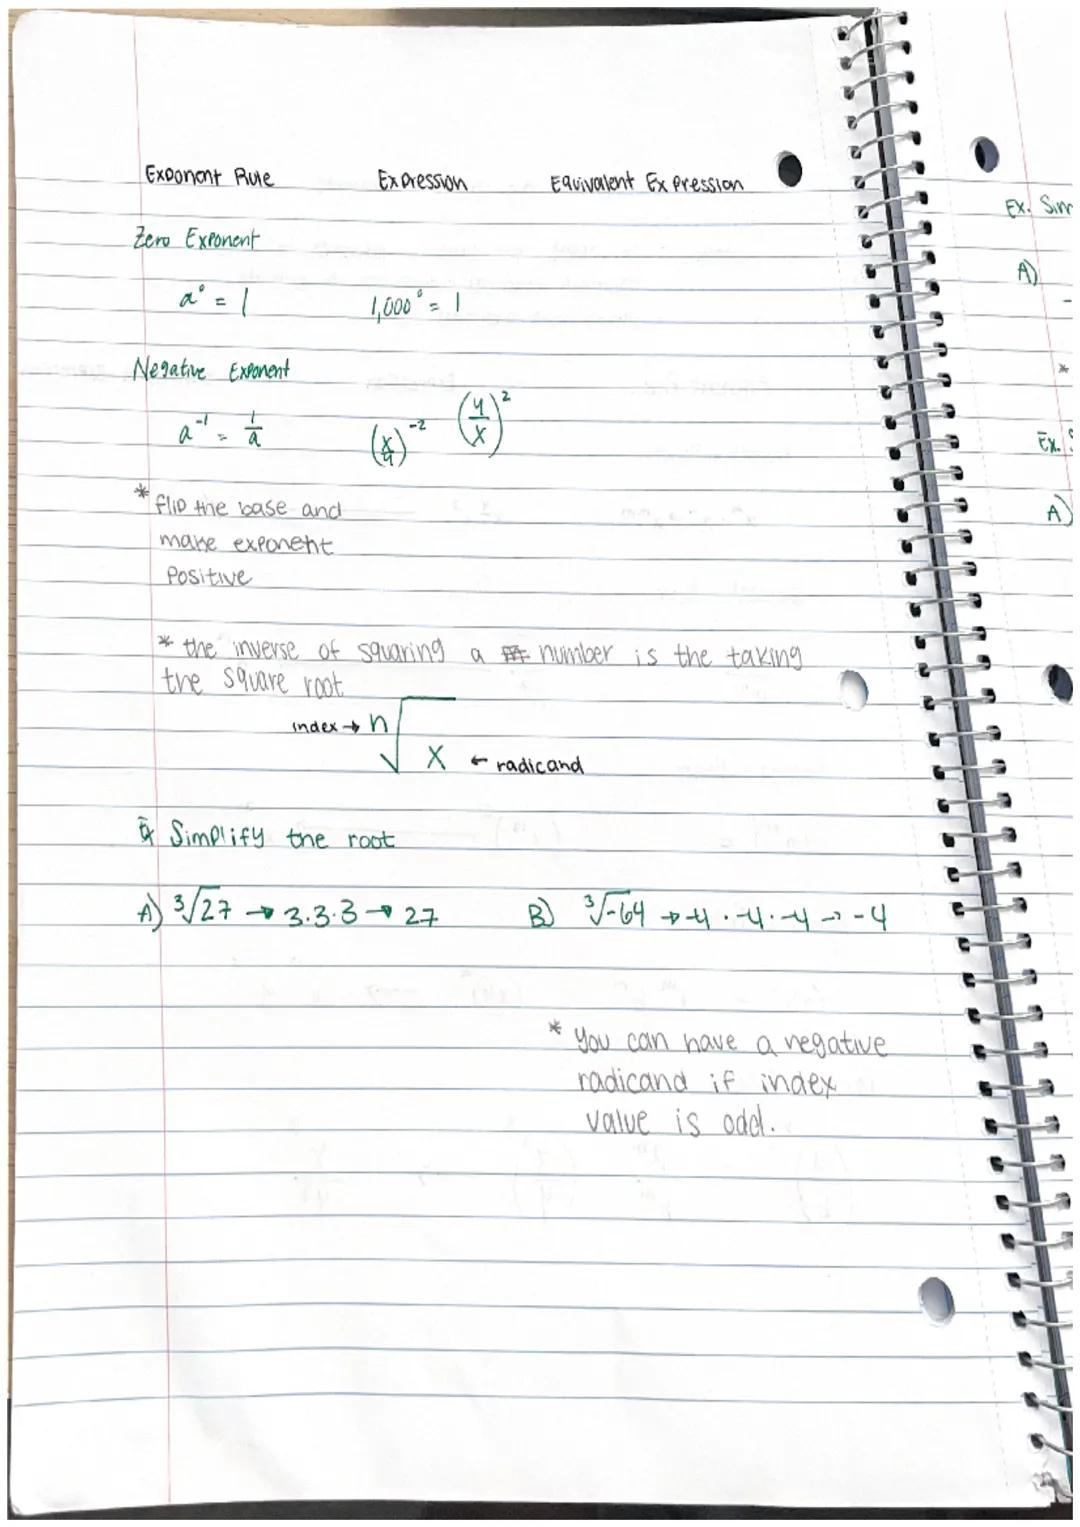 Exponent Rule Expression Equivalent Expression
Zero Exponent
a⁰ = 1 1,000⁰ = 1
Negative Exponent
a⁻¹ = 1/a (x/4)⁻² (4/x)²
* flip the base and
make exponent
Positive
* the inverse of squaring a number is the taking
the square root
index → n
√ x ← radicand
Ex Simplify the root
A) ³√27 → 3·3·3 → 27 B) ³√-64 → -4 · -4 · -4 → -4
* You can have a negative
radicand if index
value is odd.
Ex. Sim
A)
-
*
Ex. S
A)